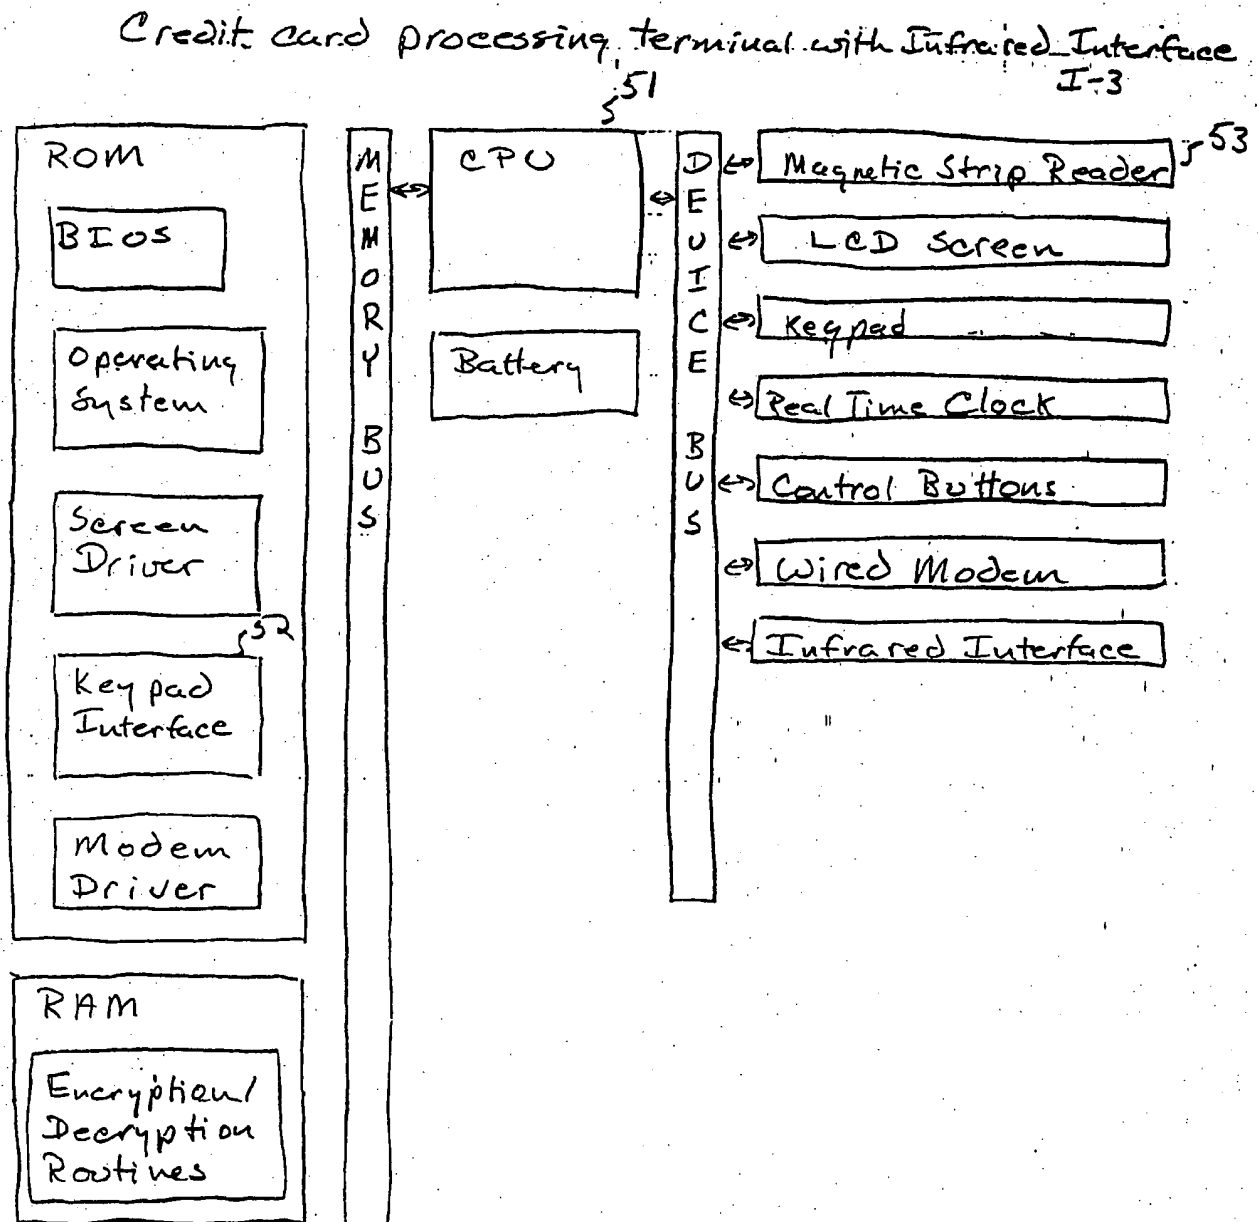 Credit card processing terminal with Infrared Interface
I-3
51
53
52
ROM
BIOS
Operating
System
Screen
Driver
Keypad
Interface
Modem
Driver
RAM
Encryption/
Decryption
Routines
MEMORY BUS
CPU
Battery
DEVICE BUS
Magnetic Strip Reader
LCD Screen
Keypad
Real Time Clock
Control Buttons
Wired Modem
Infrared Interface